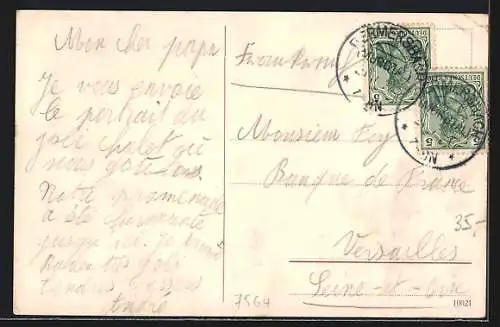 Mon cher papa
Je vous envoie
le portrait du
joli chalet où
nous goûtons.
Notre promenade
a été charmante
jusqu'ici. Je
très joli
Tendres
André
Frankreich
Monsieur Foy
Banque de France
Versailles
Seine-et-Oise
35,-
7564
10021
5
5